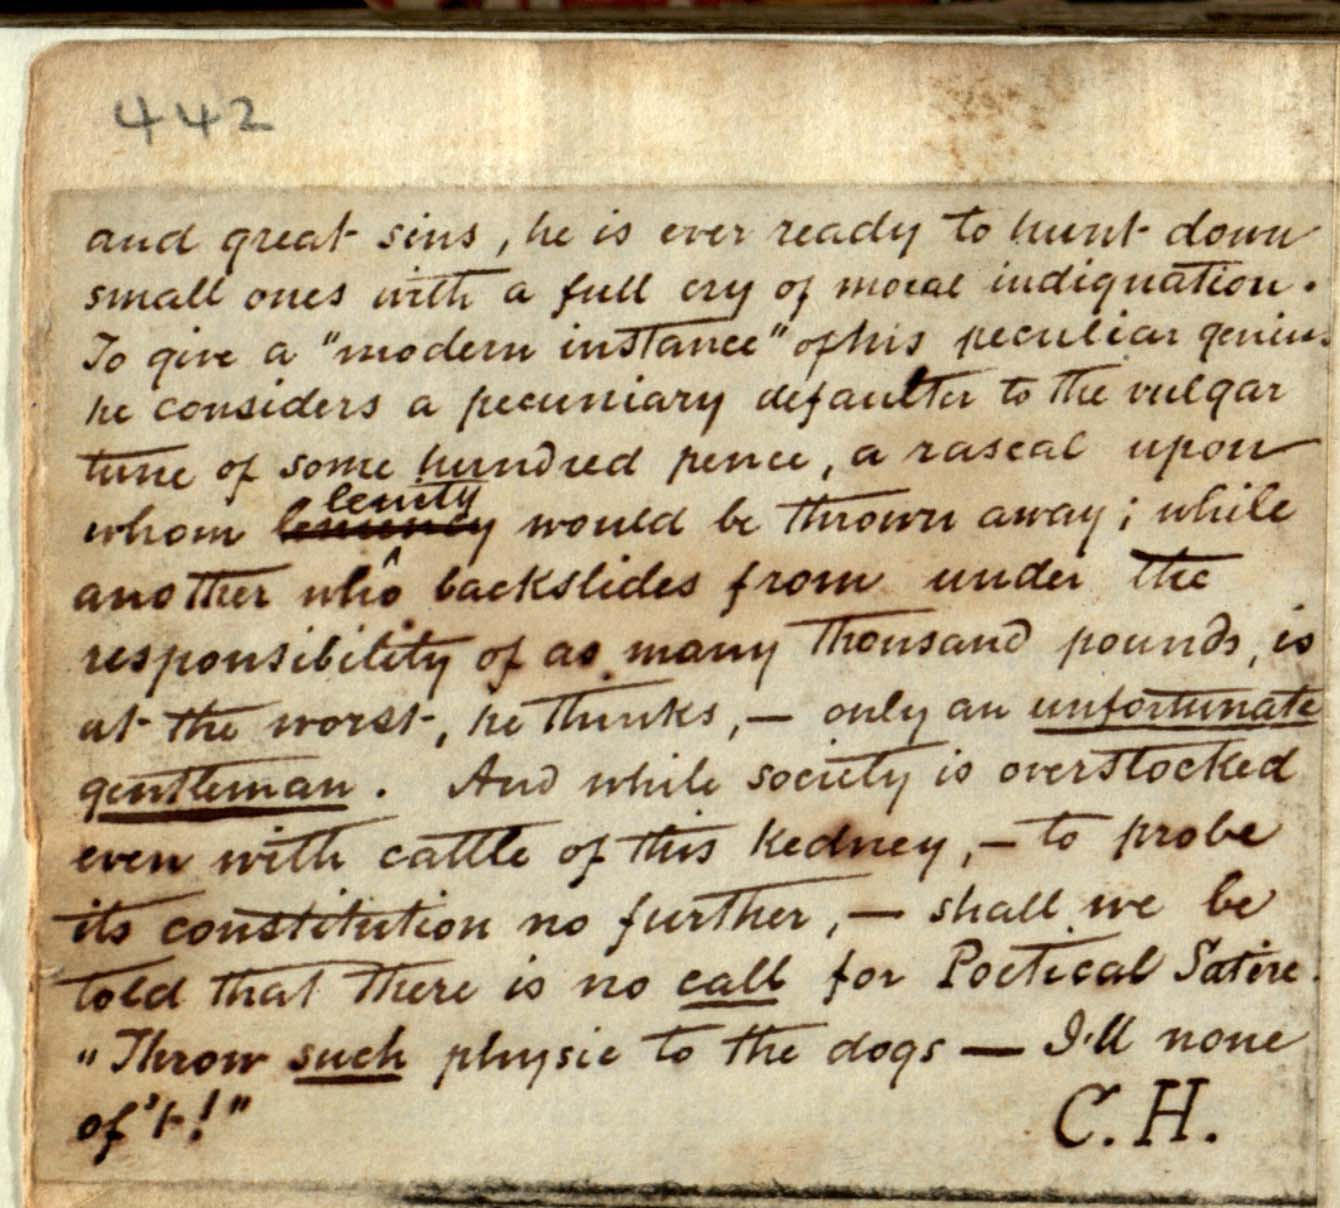 442
and great sins, he is ever ready to hunt down
small ones with a full cry of moral indignation.
To give a "modern instance" of his peculiar genius
he considers a pecuniary defaulter to the vulgar
tune of some hundred pence, a rascal upon
lenity
whom would be thrown away; while
another who backslides from under the
responsibility of as many thousand pounds, is
at the worst, he thinks, — only an unfortunate
gentleman. And while society is overstocked
even with cattle of this Kedney, — to probe
its constitution no further, — shall we be
told that there is no call for Poetical Satire.
"Throw such physic to the dogs — I'll none
of't!"
C. H.